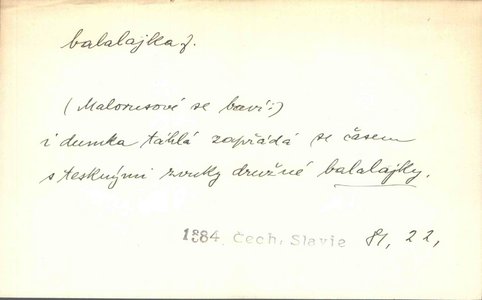 balalajka f.
(Malorusové se baví:)
i dumka táhlá zapřádá se časem
s tesknými zvuky družné balalajky.
1884 Čech, Slavie 81, 22,